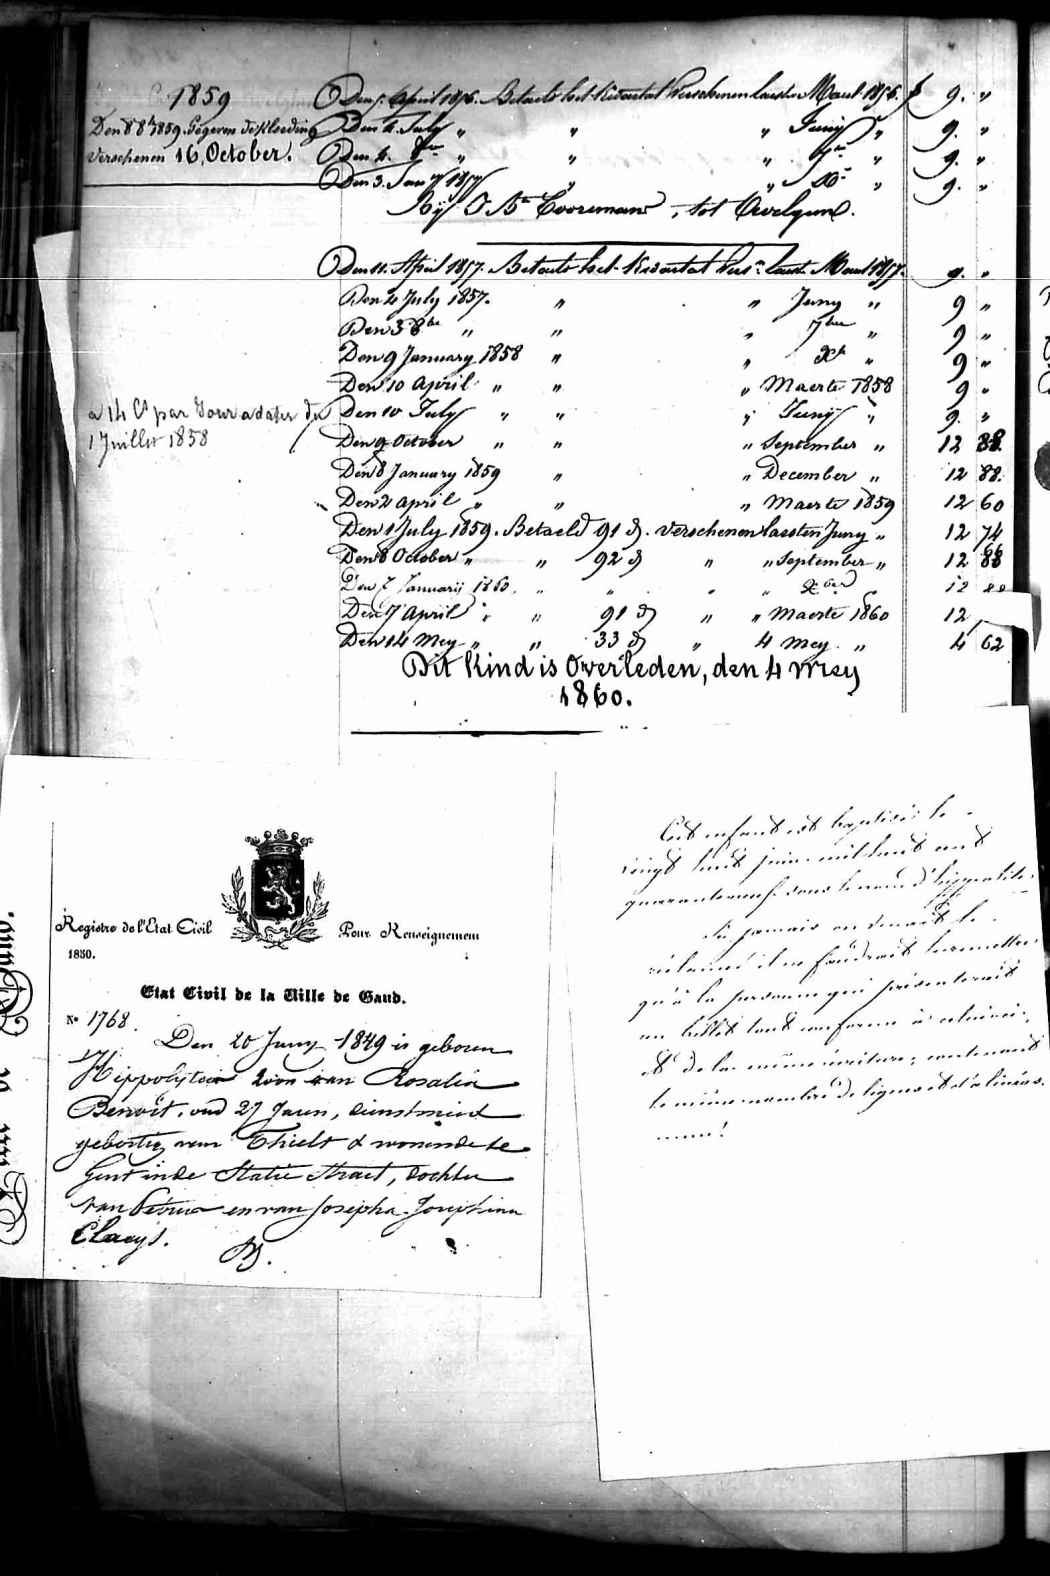 1859
Den 8 8bre 1859. Gegeven de kleeding
verschenen 16, October.
Den 5 April 1856. Betaelt het kwartal verschenen laaste Maert 1856. f 9. "
Den 4. July " " " Juny " 9. "
Den 4. 8bre " " " 7bre " 9. "
Den 3. Jany 1857 " " Xbr " 9. "
Bij J Bte Cooreman, tot Avelgem.
Den 11. April 1857. Betaelt het kwartal vers.n laast. Maert 1857. 9. "
Den 4 July 1857. " " Juny " 9 "
Den 3 8bre " " " 7bre " 9 "
Den 9 January 1858 " " Xbr " 9 "
Den 10 April " " " Maerte 1858 9 "
a 14 Cs par Jour a dater du
1 Juillet 1858
Den 10 July " " " Junÿ " 9. "
Den 9 October " " " September " 12 88.
Den 8 January 1859 " " December " 12 88.
Den 2 April " " " Maerte 1859 12 60
Den 1 July 1859. Betaeld 91 d. verschenen laesten Juny " 12 74
Den 8 October " " 92 d " " September " 12 88
Den 7 Januarij 1860. " " " " Xber " 12 88
Den 7 April " " 91 d " " Maerte 1860 12
Den 14 Mey " " 33 d " 4 mey. " 4 62
Dit kind is Overleden, den 4 mey
1860.
Registre de l'Etat Civil Pour Renseignement
1850.
Etat Civil de la Ville de Gand.
No 1768.
Den 20 Juny 1849 is geboren
Hippolytus zoon van Rosalia
Benoît, oud 27 Jaren, dienstmeid
gebortig van Thielt & wonende te
Gent in de Statie straet, dochter
van Petrus en van Josepha Josephina
Claeys.
Cet enfant est baptisé le
vingt huit juin mil huit cent
quarante neuf sous le nom d'hippolite.
Si jamais on venait le
réclamer il ne faudrait le remettre
qu'à la personne qui présenterait
un billet tout conforme à celui-ci,
et de la même écriture; contenant
le même nombre de lignes et d'alinéas.
......!